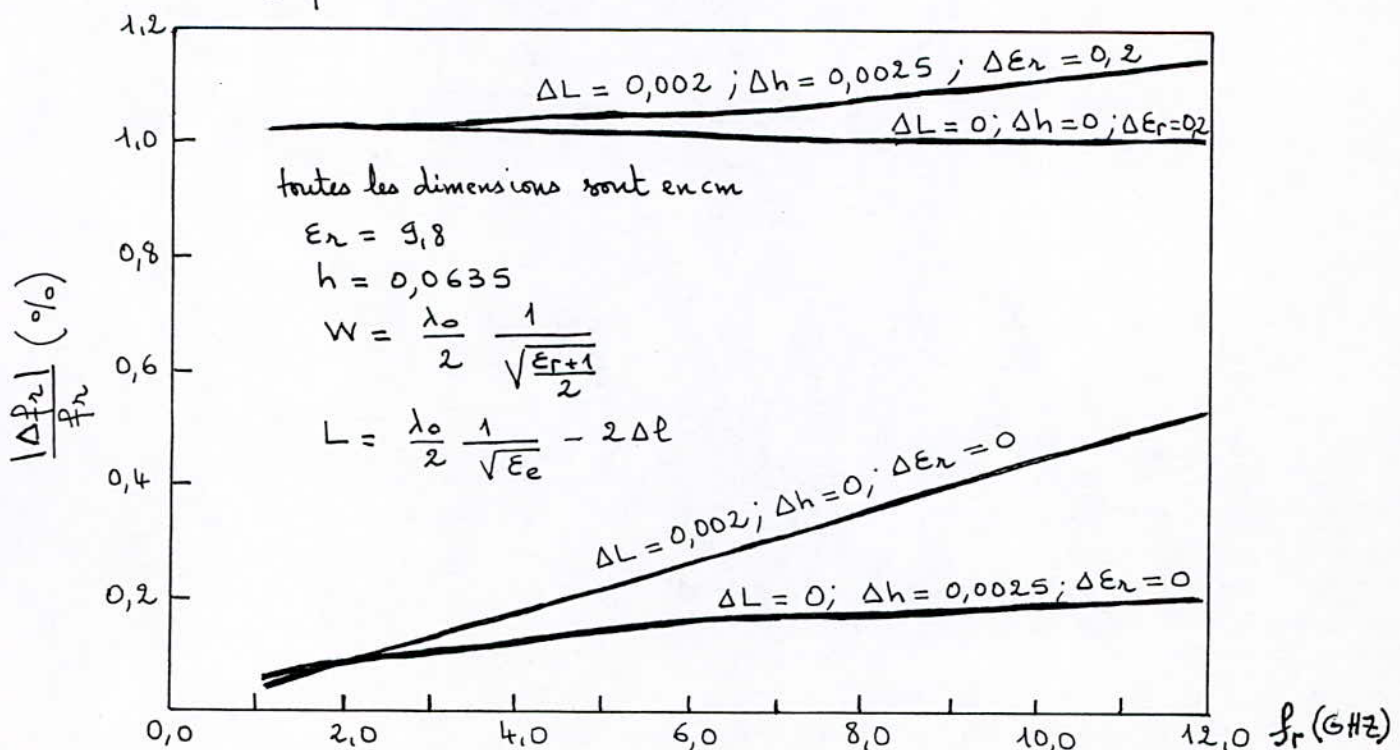 1,2
ΔL = 0,002 ; Δh = 0,0025 ; Δεr = 0,2
1,0
ΔL = 0; Δh = 0 ; Δεr = 0,2
toutes les dimensions sont en cm
εr = 9,8
0,8
h = 0,0635
W = λ₀/2 1/√((εr+1)/2)
0,6
|Δfr|/fr (%)
L = λ₀/2 1/√εe - 2Δl
0,4
ΔL = 0,002 ; Δh = 0 ; Δεr = 0
0,2
ΔL = 0; Δh = 0,0025 ; Δεr = 0
0,0 2,0 4,0 6,0 8,0 10,0 12,0 fr (GHZ)